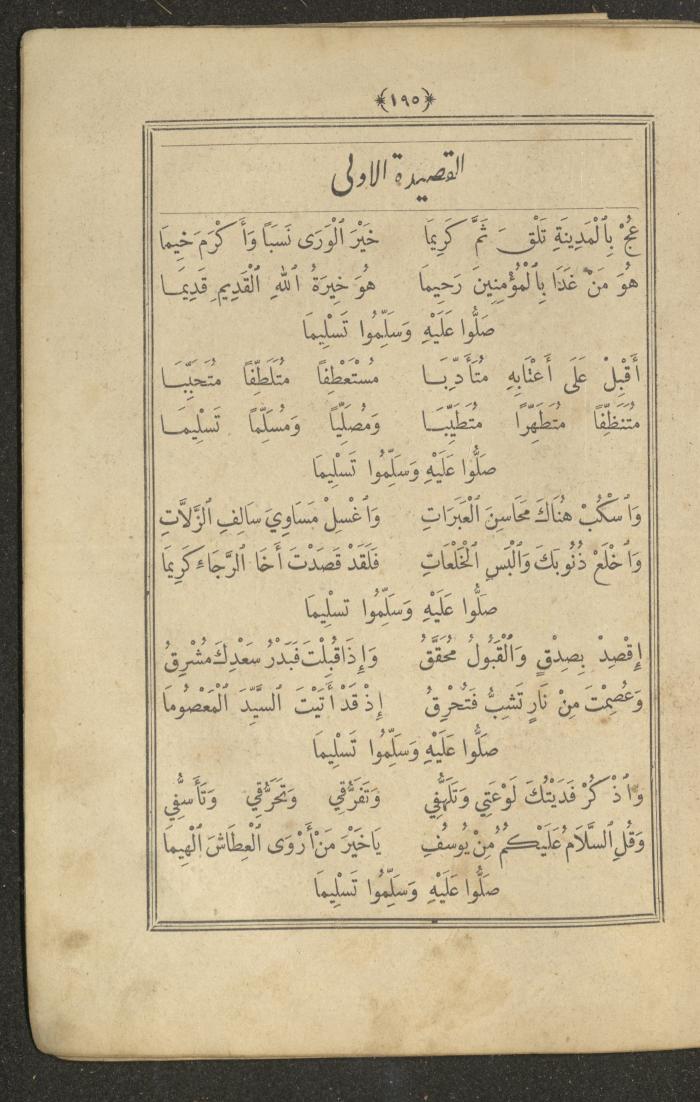 ١٩٥
القصيدة الاولى
عُجْ بِٱلْمَدِينَةِ تَلْقَ ثَمَّ كَرِيمَا خَيْرَ ٱلْوَرَى نَسَبًا وَأَكْرَمَ خِيمَا
هُوَ مَنْ غَدَا بِٱلْمُؤْمِنِينَ رَحِيمَا هُوَ خِيرَةُ ٱللهِ ٱلْقَدِيمِ قَدِيمَا
صَلُّوا عَلَيْهِ وَسَلِّمُوا تَسْلِيمَا
أَقْبِلْ عَلَى أَعْتَابِهِ مُتَأَدِّبَا مُسْتَعْطِفًا مُتَلَطِّفًا مُتَحَبِّبَا
مُتَنَظِّفًا مُتَطَهِّرًا مُتَطَيِّبَا وَمُصَلِّيًا وَمُسَلِّمًا تَسْلِيمَا
صَلُّوا عَلَيْهِ وَسَلِّمُوا تَسْلِيمَا
وَٱسْكُبْ هُنَاكَ مَحَاسِنَ ٱلْعَبَرَاتِ وَٱغْسِلْ مَسَاوِيَ سَالِفِ ٱلزَّلَّاتِ
وَٱخْلَعْ ذُنُوبَكَ وَٱلْبَسِ ٱلْخَلْعَاتِ فَلَقَدْ قَصَدْتَ أَخَا ٱلرَّجَاءِ كَرِيمَا
صَلُّوا عَلَيْهِ وَسَلِّمُوا تسْلِيمَا
إِقْصِدْ بِصِدْقٍ وَٱلْقَبُولُ مُحَقَّقُ وَإِذَا قُبِلْتَ فَبَدْرُ سَعْدِكَ مُشْرِقُ
وَعُصِمْتَ مِنْ نَارٍ تَشِبُّ فَتُحْرِقُ إِذْ قَدْ أَتَيْتَ ٱلسَّيِّدَ ٱلْمَعْصُومَا
صَلُّوا عَلَيْهِ وَسَلِّمُوا تَسْلِيمَا
وَٱذْكُرْ فَدَيْتُكَ لَوْعَتِي وَتَلَهُّفِي وَتَفَرُّقِي وَتَحَرُّقِي وَتَأَسُّفِي
وَقُلِ ٱلسَّلَامُ عَلَيْكُمُ مِنْ يُوسُفِ يَا خَيْرَ مَنْ أَرْوَى ٱلْعِطَاشَ ٱلْهِيمَا
صَلُّوا عَلَيْهِ وَسَلِّمُوا تَسْلِيمَا